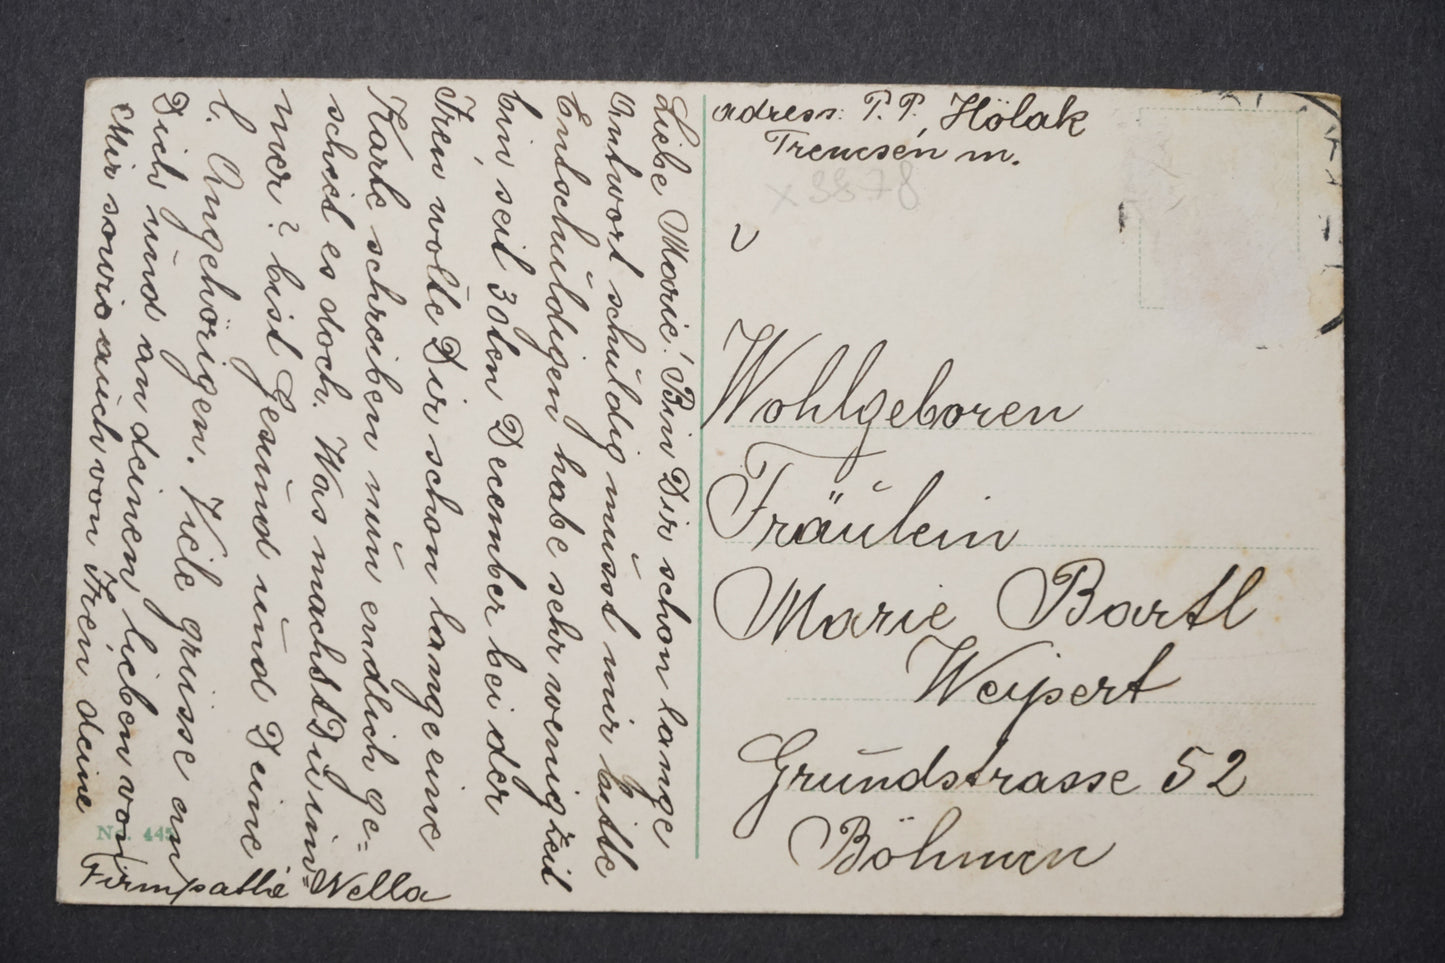 Liebe Marie! Bin Dir schon lange
Antwort schuldig müsst mir bitte
Entschuldigen habe sehr wenig Zeit
bin seit 30ten December bei der
Tren wolte Dir schon lange eine
Karte schreiben nün endlich ge=
schiet es doch. Was machst Du im=
mer? bist Gesund ünd Deine
l. Angehörigen. Viele grüsse an
Dich ünd an deinen lieben von
Mir sowie aüch von Tren deine
Firmpathe Wella
No. 445
adress: P. P. Hölak
Trencsén m.
x 3378
Wohlgeboren
Fräulein
Marie Bartl
Weipert
Grundstrasse 52
Böhmen